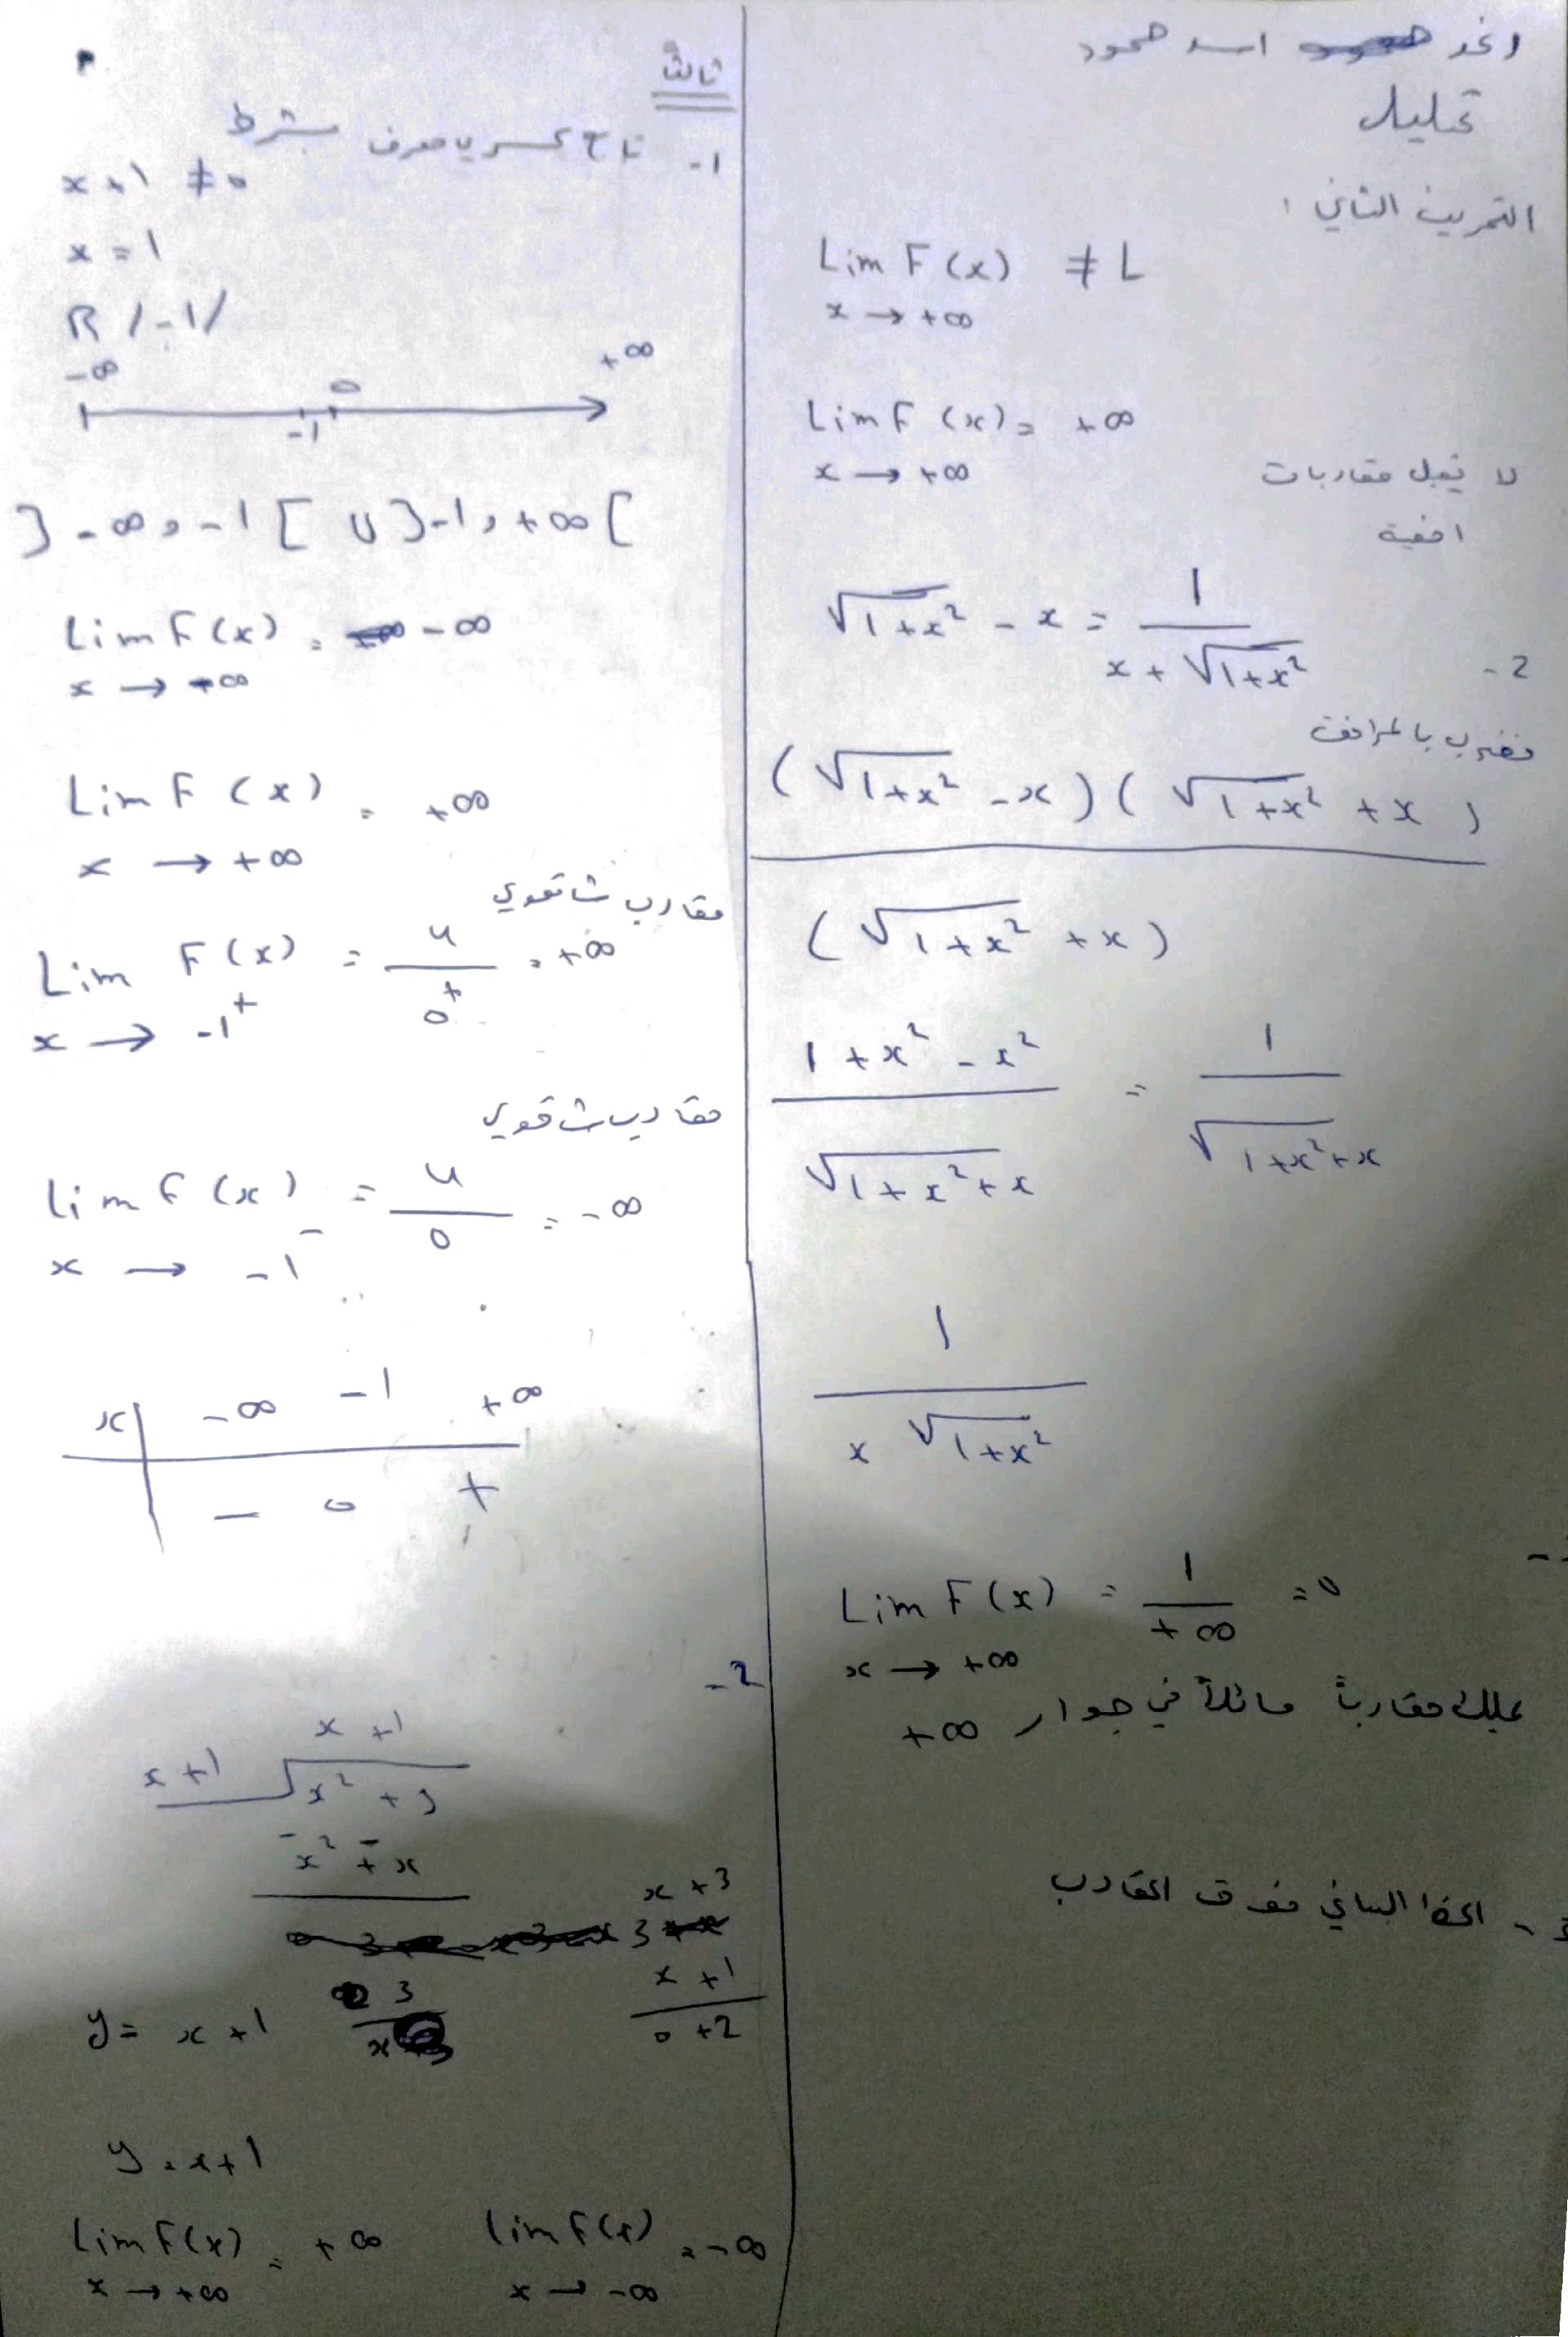 رغد اسد حمود
تحليل
التمرين الثاني :
Lim F(x) ≠ L
x → +∞
Lim F(x) = +∞
x → +∞
لا يقبل مقاربات
افقية
2 -
√1+x² - x = 1 / x + √1+x²
نضرب بالمرافق
(√1+x² - x)(√1+x² + x)
(√1+x² + x)
1 + x² - x² / √1+x²+x = 1 / √1+x²+x
1
x √1+x²
Lim F(x) = 1 / +∞ = 0
x → +∞
يملك مقارباً مائلاً في جوار +∞
الخط البياني فوق المقارب
ثالثاً
1- تابع كسري معرف بشرط
x + 1 ≠ 0
x = 1
R / -1 /
-∞ -1 0 +∞
] -∞ , -1 [ U ] -1 , +∞ [
Lim F(x) = -∞
x → -∞
Lim F(x) = +∞
x → +∞
مقارب شاقولي
Lim F(x) = 4 / 0⁺ = +∞
x → -1⁺
مقارب شاقولي
Lim F(x) = 4 / 0 = -∞
x → -1⁻
x | -∞ -1 +∞
- 0 +
2 -
x + 1
x + 1 √x² + 3
- x² + - x
x + 3
x + 1
0 + 2
y = x + 1
3
x
y = x + 1
Lim F(x) = +∞ Lim F(x) = -∞
x → +∞ x → -∞